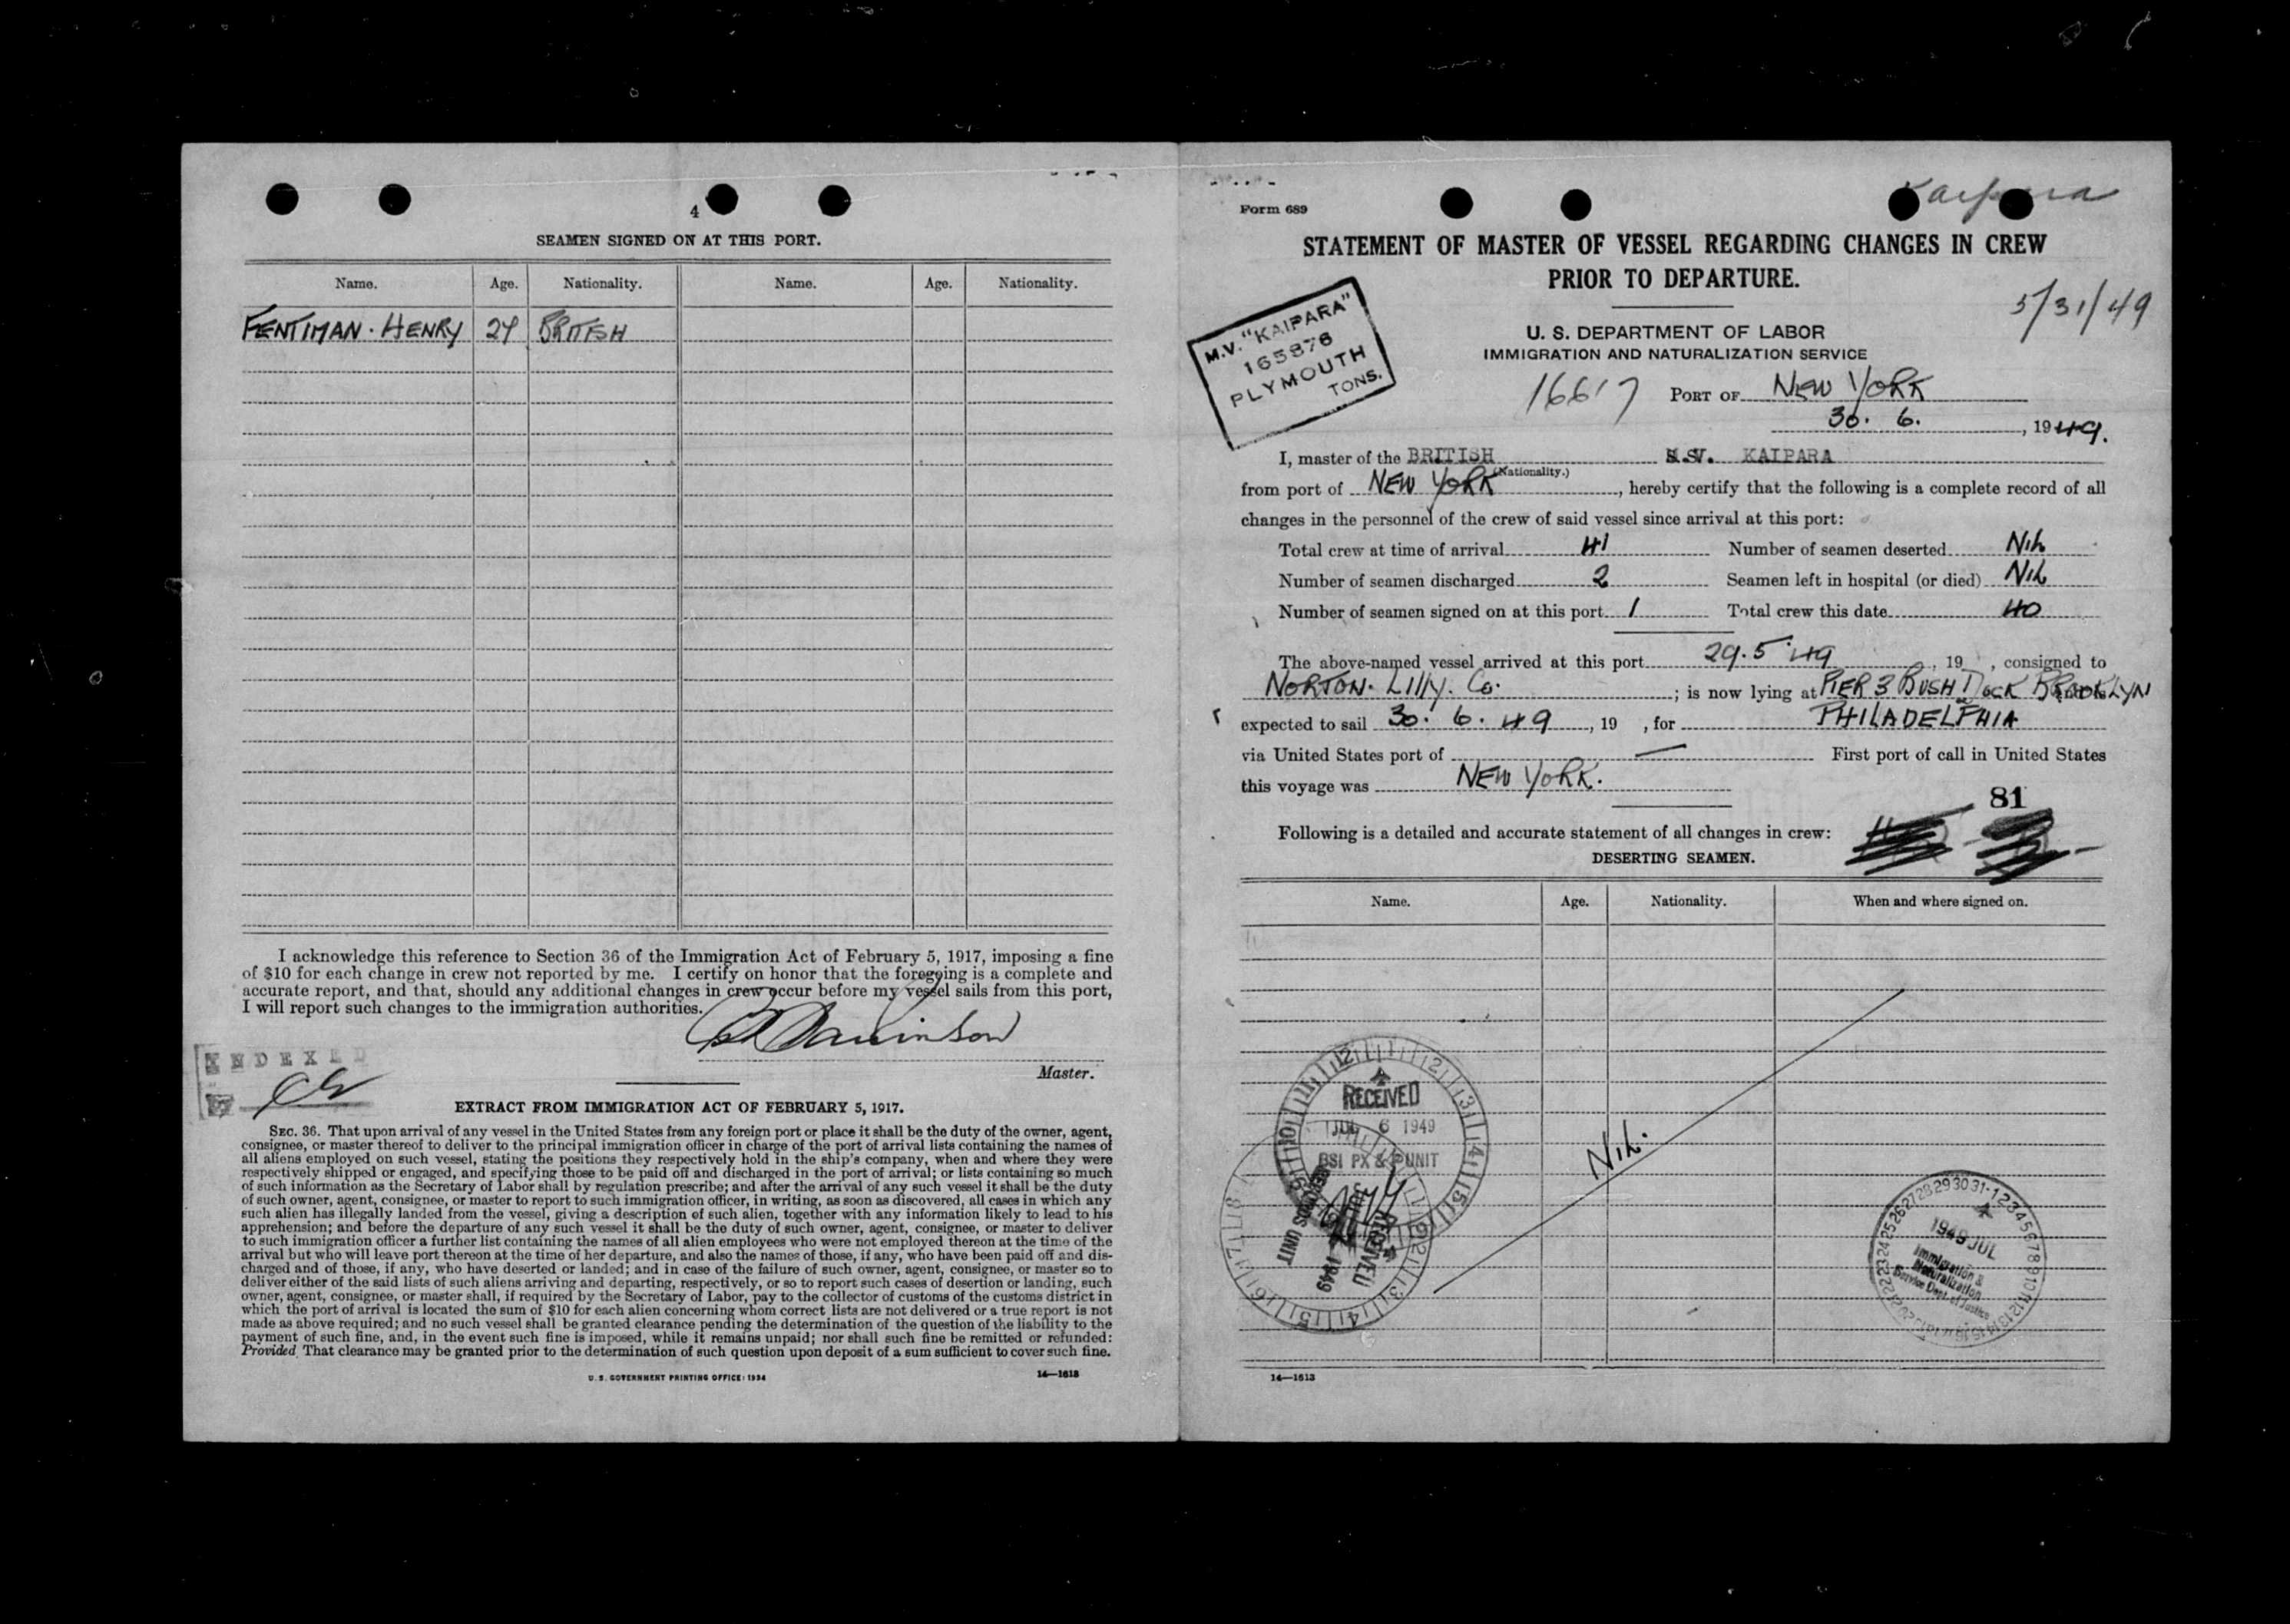 4
SEAMEN SIGNED ON AT THIS PORT.
Name. Age. Nationality. Name. Age. Nationality.
FENTIMAN · HENRY 24 BRITISH
I acknowledge this reference to Section 36 of the Immigration Act of February 5, 1917, imposing a fine
of $10 for each change in crew not reported by me. I certify on honor that the foregoing is a complete and
accurate report, and that, should any additional changes in crew occur before my vessel sails from this port,
I will report such changes to the immigration authorities.
Master.
INDEXED
EXTRACT FROM IMMIGRATION ACT OF FEBRUARY 5, 1917.
SEC. 36. That upon arrival of any vessel in the United States from any foreign port or place it shall be the duty of the owner, agent,
consignee, or master thereof to deliver to the principal immigration officer in charge of the port of arrival lists containing the names of
all aliens employed on such vessel, stating the positions they respectively hold in the ship's company, when and where they were
respectively shipped or engaged, and specifying those to be paid off and discharged in the port of arrival; or lists containing so much
of such information as the Secretary of Labor shall by regulation prescribe; and after the arrival of any such vessel it shall be the duty
of such owner, agent, consignee, or master to report to such immigration officer, in writing, as soon as discovered, all cases in which any
such alien has illegally landed from the vessel, giving a description of such alien, together with any information likely to lead to his
apprehension; and before the departure of any such vessel it shall be the duty of such owner, agent, consignee, or master to deliver
to such immigration officer a further list containing the names of all alien employees who were not employed thereon at the time of the
arrival but who will leave port thereon at the time of her departure, and also the names of those, if any, who have been paid off and dis-
charged and of those, if any, who have deserted or landed; and in case of the failure of such owner, agent, consignee, or master so to
deliver either of the said lists of such aliens arriving and departing, respectively, or so to report such cases of desertion or landing, such
owner, agent, consignee, or master shall, if required by the Secretary of Labor, pay to the collector of customs of the customs district in
which the port of arrival is located the sum of $10 for each alien concerning whom correct lists are not delivered or a true report is not
made as above required; and no such vessel shall be granted clearance pending the determination of the question of the liability to the
payment of such fine, and, in the event such fine is imposed, while it remains unpaid; nor shall such fine be remitted or refunded:
Provided That clearance may be granted prior to the determination of such question upon deposit of a sum sufficient to cover such fine.
U. S. GOVERNMENT PRINTING OFFICE: 1934 14—1613
Kaipara
Form 689
STATEMENT OF MASTER OF VESSEL REGARDING CHANGES IN CREW
PRIOR TO DEPARTURE.
5/31/49
M.V. "KAIPARA"
165876
PLYMOUTH
TONS.
U. S. DEPARTMENT OF LABOR
IMMIGRATION AND NATURALIZATION SERVICE
16617 PORT OF NEW YORK
30. 6. , 1949.
I, master of the BRITISH M.V. KAIPARA
(Nationality.)
from port of NEW YORK, hereby certify that the following is a complete record of all
changes in the personnel of the crew of said vessel since arrival at this port:
Total crew at time of arrival 41 Number of seamen deserted NIL
Number of seamen discharged 2 Seamen left in hospital (or died) NIL
Number of seamen signed on at this port 1 Total crew this date 40
The above-named vessel arrived at this port 29.5.49, 19 , consigned to
NORTON. LILLY. Co. ; is now lying at PIER 3 BUSH DOCK BROOKLYN
expected to sail 30. 6. 49, 19 , for PHILADELPHIA
via United States port of — First port of call in United States
this voyage was NEW YORK.
81
Following is a detailed and accurate statement of all changes in crew:
DESERTING SEAMEN.
Name. Age. Nationality. When and where signed on.
NIL.
RECEIVED
JUL 6 1949
BSI PX & P UNIT
RECORDS UNIT
RECEIVED
1949
1949 JUL
Immigration &
Naturalization
Service Dept. of Justice
14—1613